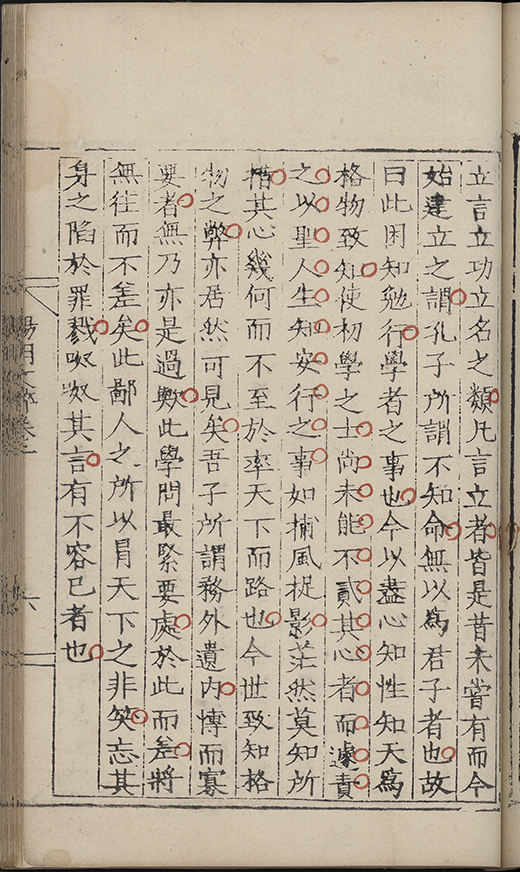 立言立功立名之類凡言立者皆是昔未嘗有而今
始建立之謂孔子所謂不知命無以爲君子者也故
曰此困知勉行學者之事也今以盡心知性知天爲
格物致知使初學之士尚未能不貳其心者而遽責
之以聖人生知安行之事如捕風捉影茫然莫知所
措其心幾何而不至於率天下而路也今世致知格
物之弊亦居然可見矣吾子所謂務外遺内博而寡
要者無乃亦是過歟此學問最緊要處於此而差將
無往而不差矣此鄙人之所以冒天下之非笑忘其
身之陷於罪戮呶呶其言有不容已者也
陽明文
六